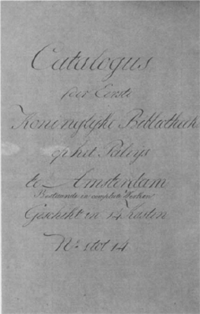 Catalogus
der Eerste
Koninglijke Bibliotheek
op het Paleijs
te Amsterdam
Bestaande in complete Werken
Geschikt in 14 Kasten
N.º 1 tot 14